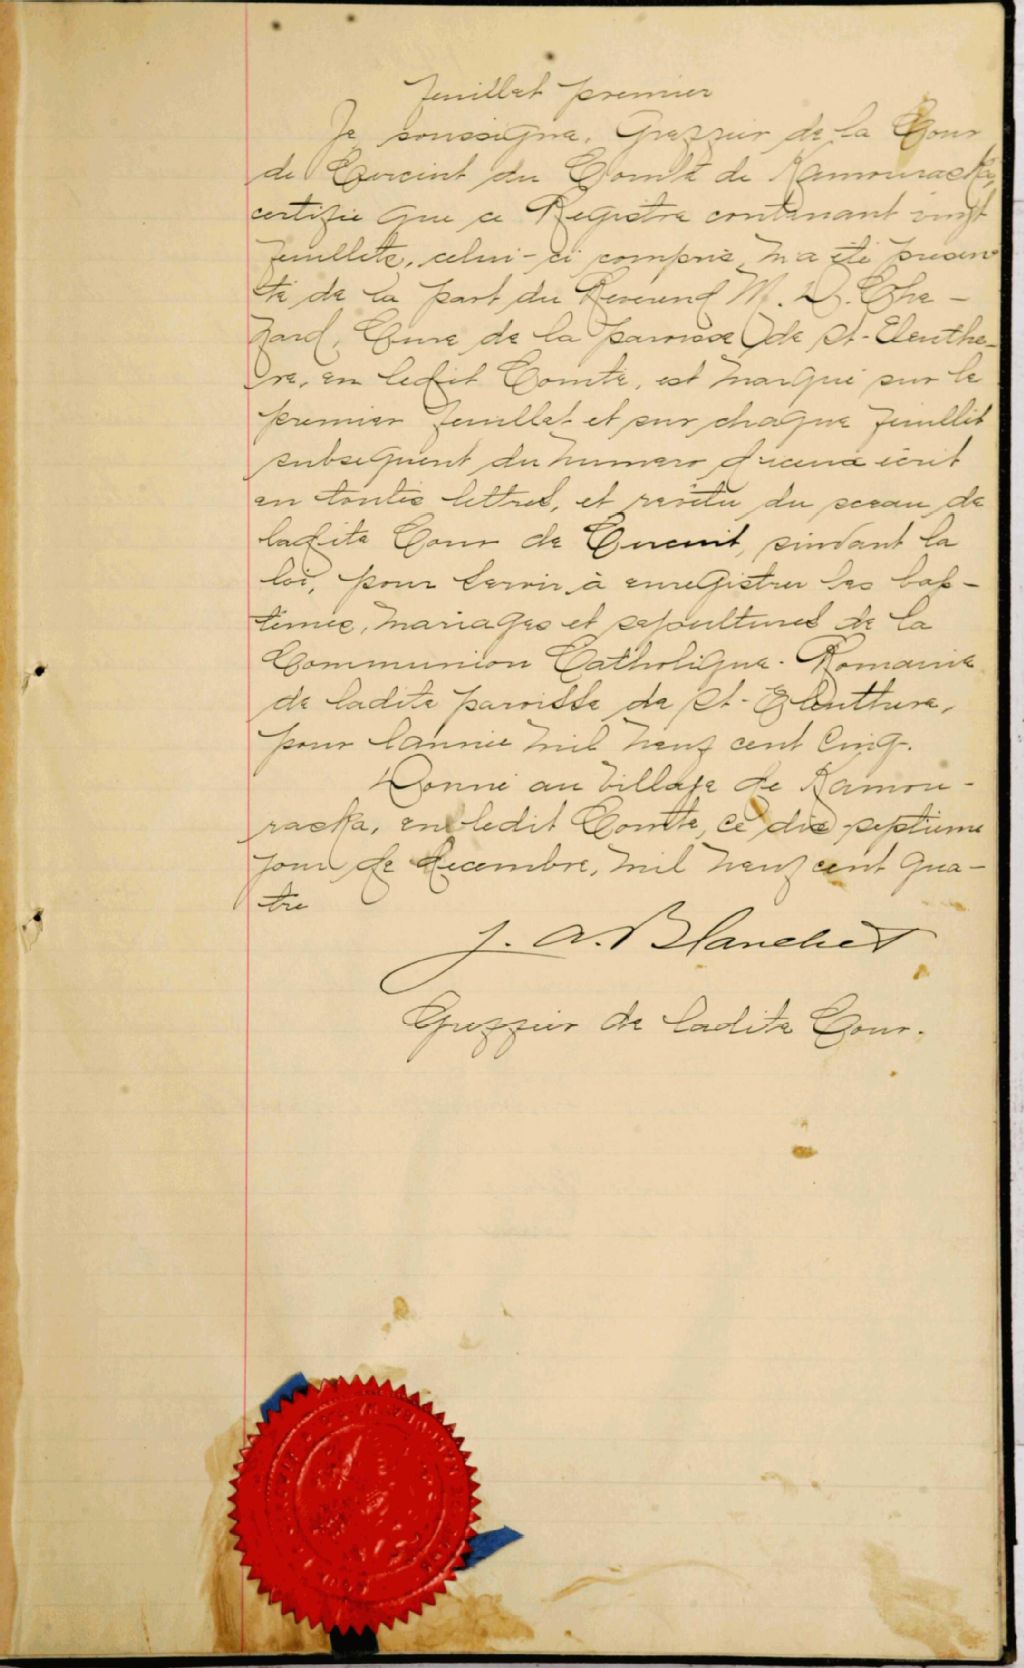 feuillet premier
Je, soussigné, Greffier de la Cour
de Circuit du Comté de Kamouraska,
certifie que ce Registre contenant vingt
feuillets, celui-ci compris, m'a été présen
té de la part du Révérend M. D. Che-
nard, Curé de la paroisse de St-Eleuthè-
re, en ledit Comté, est marqué sur le
premier feuillet et sur chaque feuillet
subséquent du numéro d'iceux écrit
en toutes lettres, et revêtu du sceau de
ladite Cour de Circuit, suivant la
loi, pour servir à enregistrer les bap-
têmes, mariages et sépultures de la
Communion Catholique-Romaine
de ladite paroisse de St-Eleuthère,
pour l'année mil neuf cent cinq.
Donné au village de Kamou-
raska, en ledit Comté, ce dix-septième
jour de décembre, mil neuf cent qua-
tre
J. A. Blanchet
Greffier de ladite Cour.